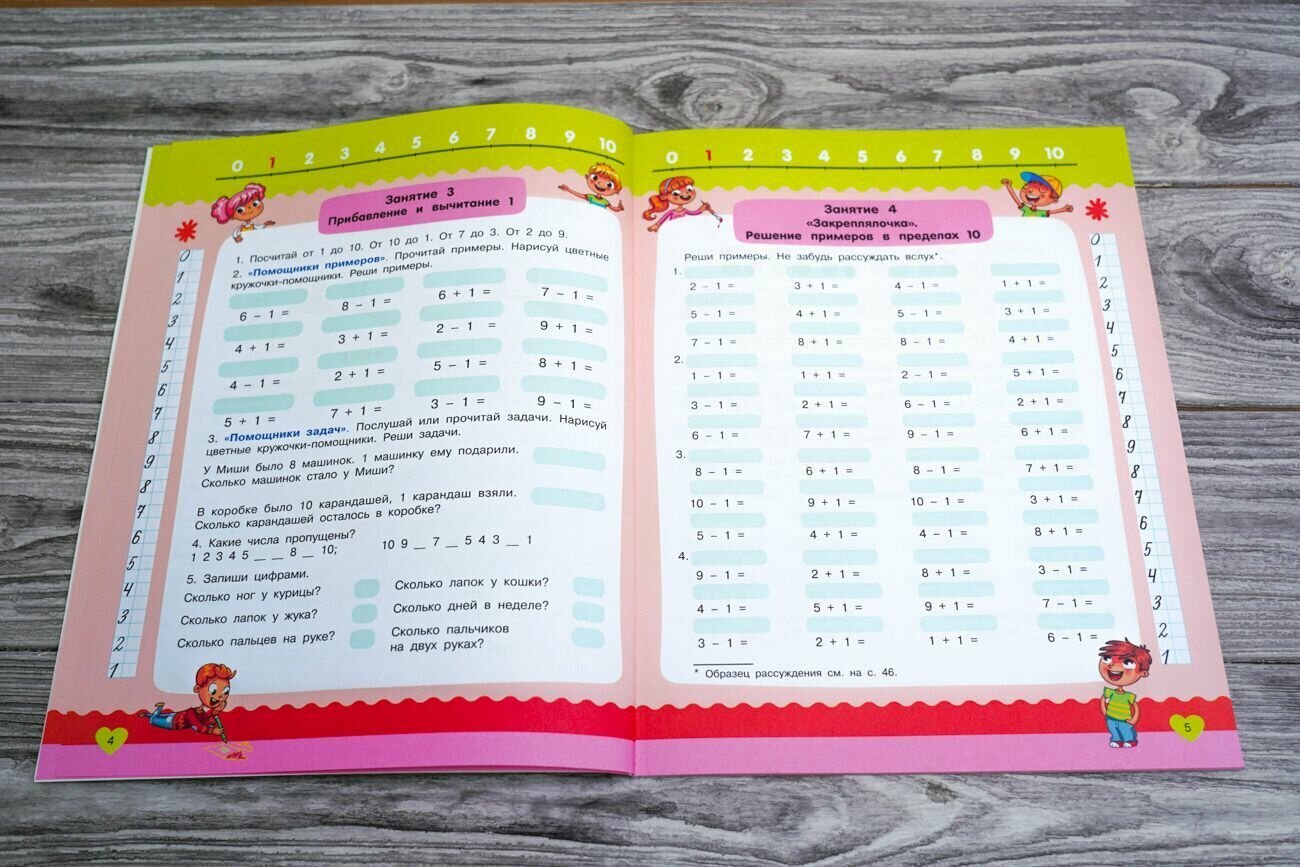 0 1 2 3 4 5 6 7 8 9 10
Занятие 3
Прибавление и вычитание 1
1. Посчитай от 1 до 10. От 10 до 1. От 7 до 3. От 2 до 9.
2. «Помощники примеров». Прочитай примеры. Нарисуй цветные
кружочки-помощники. Реши примеры.
6 – 1 = 8 – 1 = 6 + 1 = 7 – 1 =
4 + 1 = 3 + 1 = 2 – 1 = 9 + 1 =
4 – 1 = 2 + 1 = 5 – 1 = 8 + 1 =
5 + 1 = 7 + 1 = 3 – 1 = 9 – 1 =
3. «Помощники задач». Послушай или прочитай задачи. Нарисуй
цветные кружочки-помощники. Реши задачи.
У Миши было 8 машинок. 1 машинку ему подарили.
Сколько машинок стало у Миши?
В коробке было 10 карандашей, 1 карандаш взяли.
Сколько карандашей осталось в коробке?
4. Какие числа пропущены?
1 2 3 4 5 __ __ 8 __ 10; 10 9 __ 7 __ 5 4 3 __ 1
5. Запиши цифрами.
Сколько ног у курицы? Сколько лапок у кошки?
Сколько лапок у жука? Сколько дней в неделе?
Сколько пальцев на руке? Сколько пальчиков
на двух руках?
0
1
2
3
4
5
6
7
8
9
8
7
6
5
4
3
2
1
4
0 1 2 3 4 5 6 7 8 9 10
Занятие 4
«Закреплялочка».
Решение примеров в пределах 10
Реши примеры. Не забудь рассуждать вслух*.
1.
2 – 1 = 3 + 1 = 4 – 1 = 1 + 1 =
5 – 1 = 4 + 1 = 5 – 1 = 3 + 1 =
7 – 1 = 8 + 1 = 8 – 1 = 4 + 1 =
2.
1 – 1 = 1 + 1 = 2 – 1 = 5 + 1 =
3 – 1 = 2 + 1 = 6 – 1 = 2 + 1 =
6 – 1 = 7 + 1 = 9 – 1 = 6 + 1 =
3.
8 – 1 = 6 + 1 = 8 – 1 = 7 + 1 =
10 – 1 = 9 + 1 = 10 – 1 = 3 + 1 =
5 – 1 = 4 + 1 = 4 – 1 = 8 + 1 =
4.
9 – 1 = 2 + 1 = 8 + 1 = 3 – 1 =
4 – 1 = 5 + 1 = 9 + 1 = 7 – 1 =
3 – 1 = 2 + 1 = 1 + 1 = 6 – 1 =
* Образец рассуждения см. на с. 46.
0
1
2
3
4
5
6
7
8
9
8
7
6
5
4
3
2
1
5